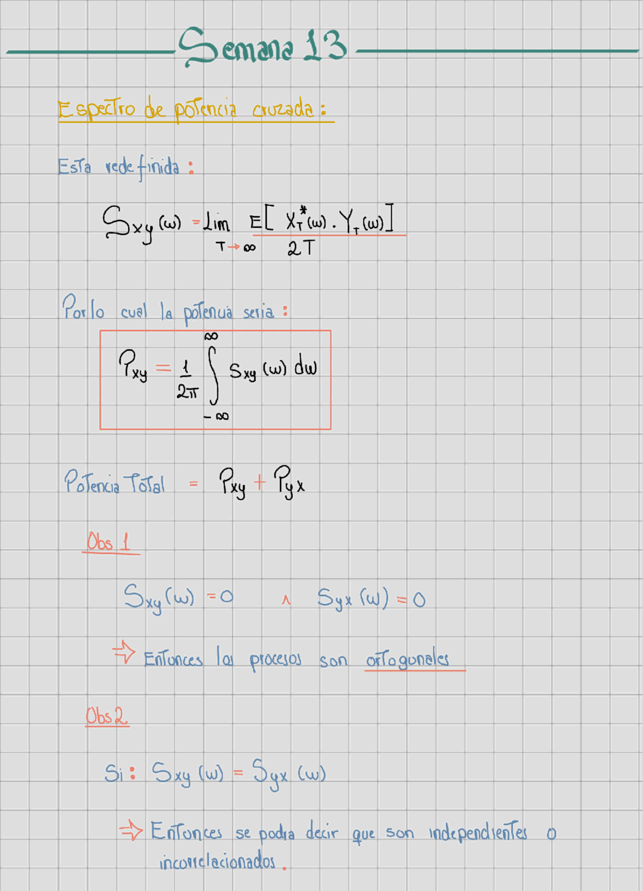 Semana 13
Espectro de potencia cruzada:
Esta redefinida:
Sxy(ω) = Lim T→∞ E[ X_T^*(ω) . Y_T(ω)] / 2T
Por lo cual la potencia seria:
Pxy = 1/2π ∫_{-∞}^{∞} Sxy(ω) dω
Potencia Total = Pxy + Pyx
Obs 1
Sxy(ω) = 0 ∧ Syx(ω) = 0
⇒ Entonces los procesos son ortogonales
Obs 2
Si: Sxy(ω) = Syx(ω)
⇒ Entonces se podria decir que son independientes o
incorrelacionados.